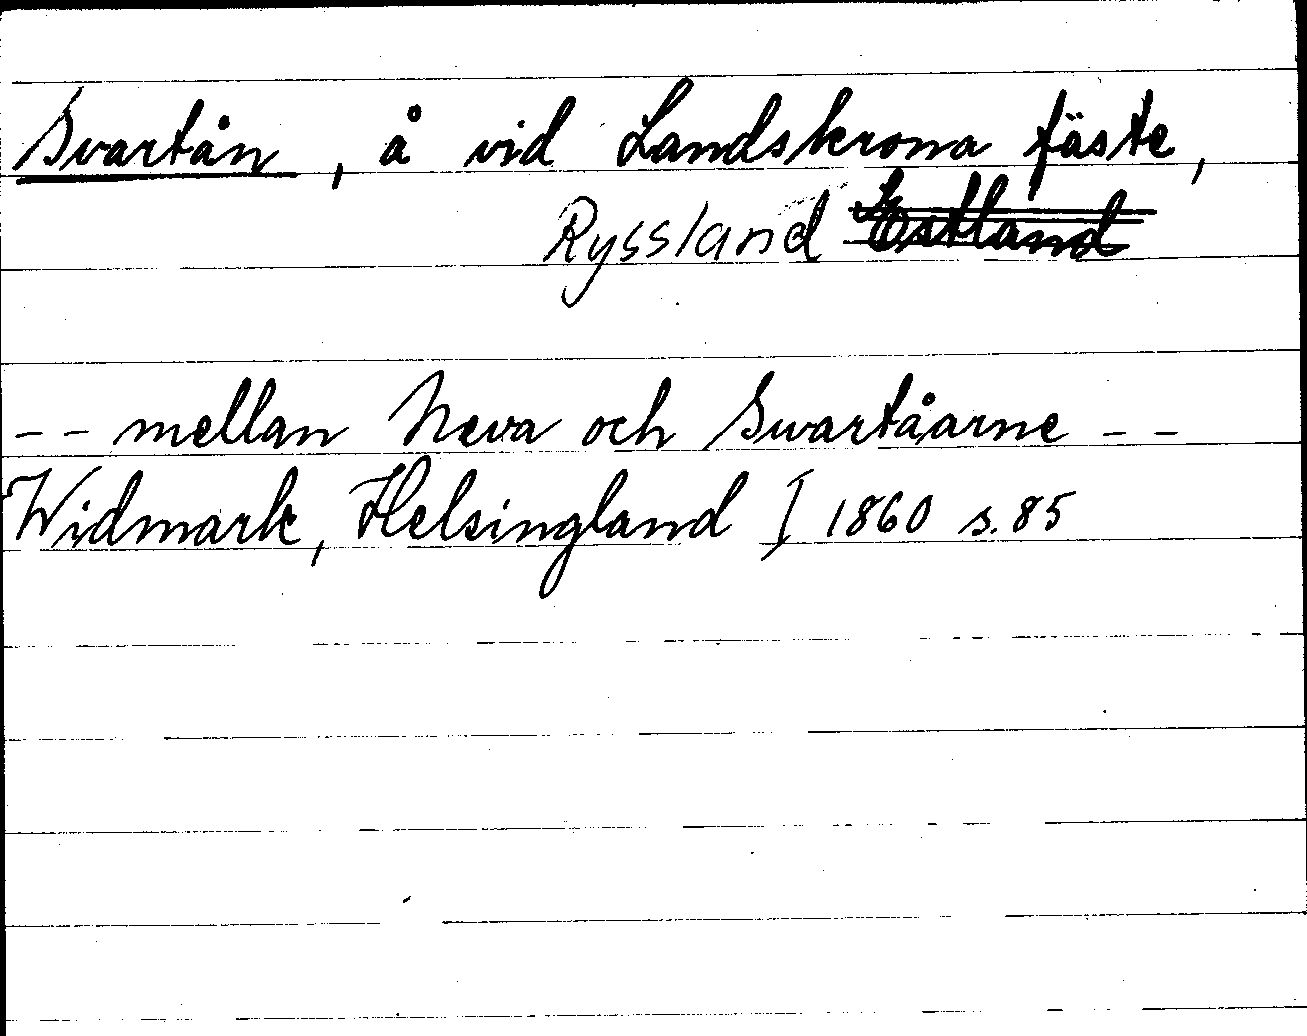 Svartån, å vid Landskrona fäste,
Ryssland Estland
-- mellan Neva och Swartåarne --
Widmark, Helsingland I 1860 s. 85